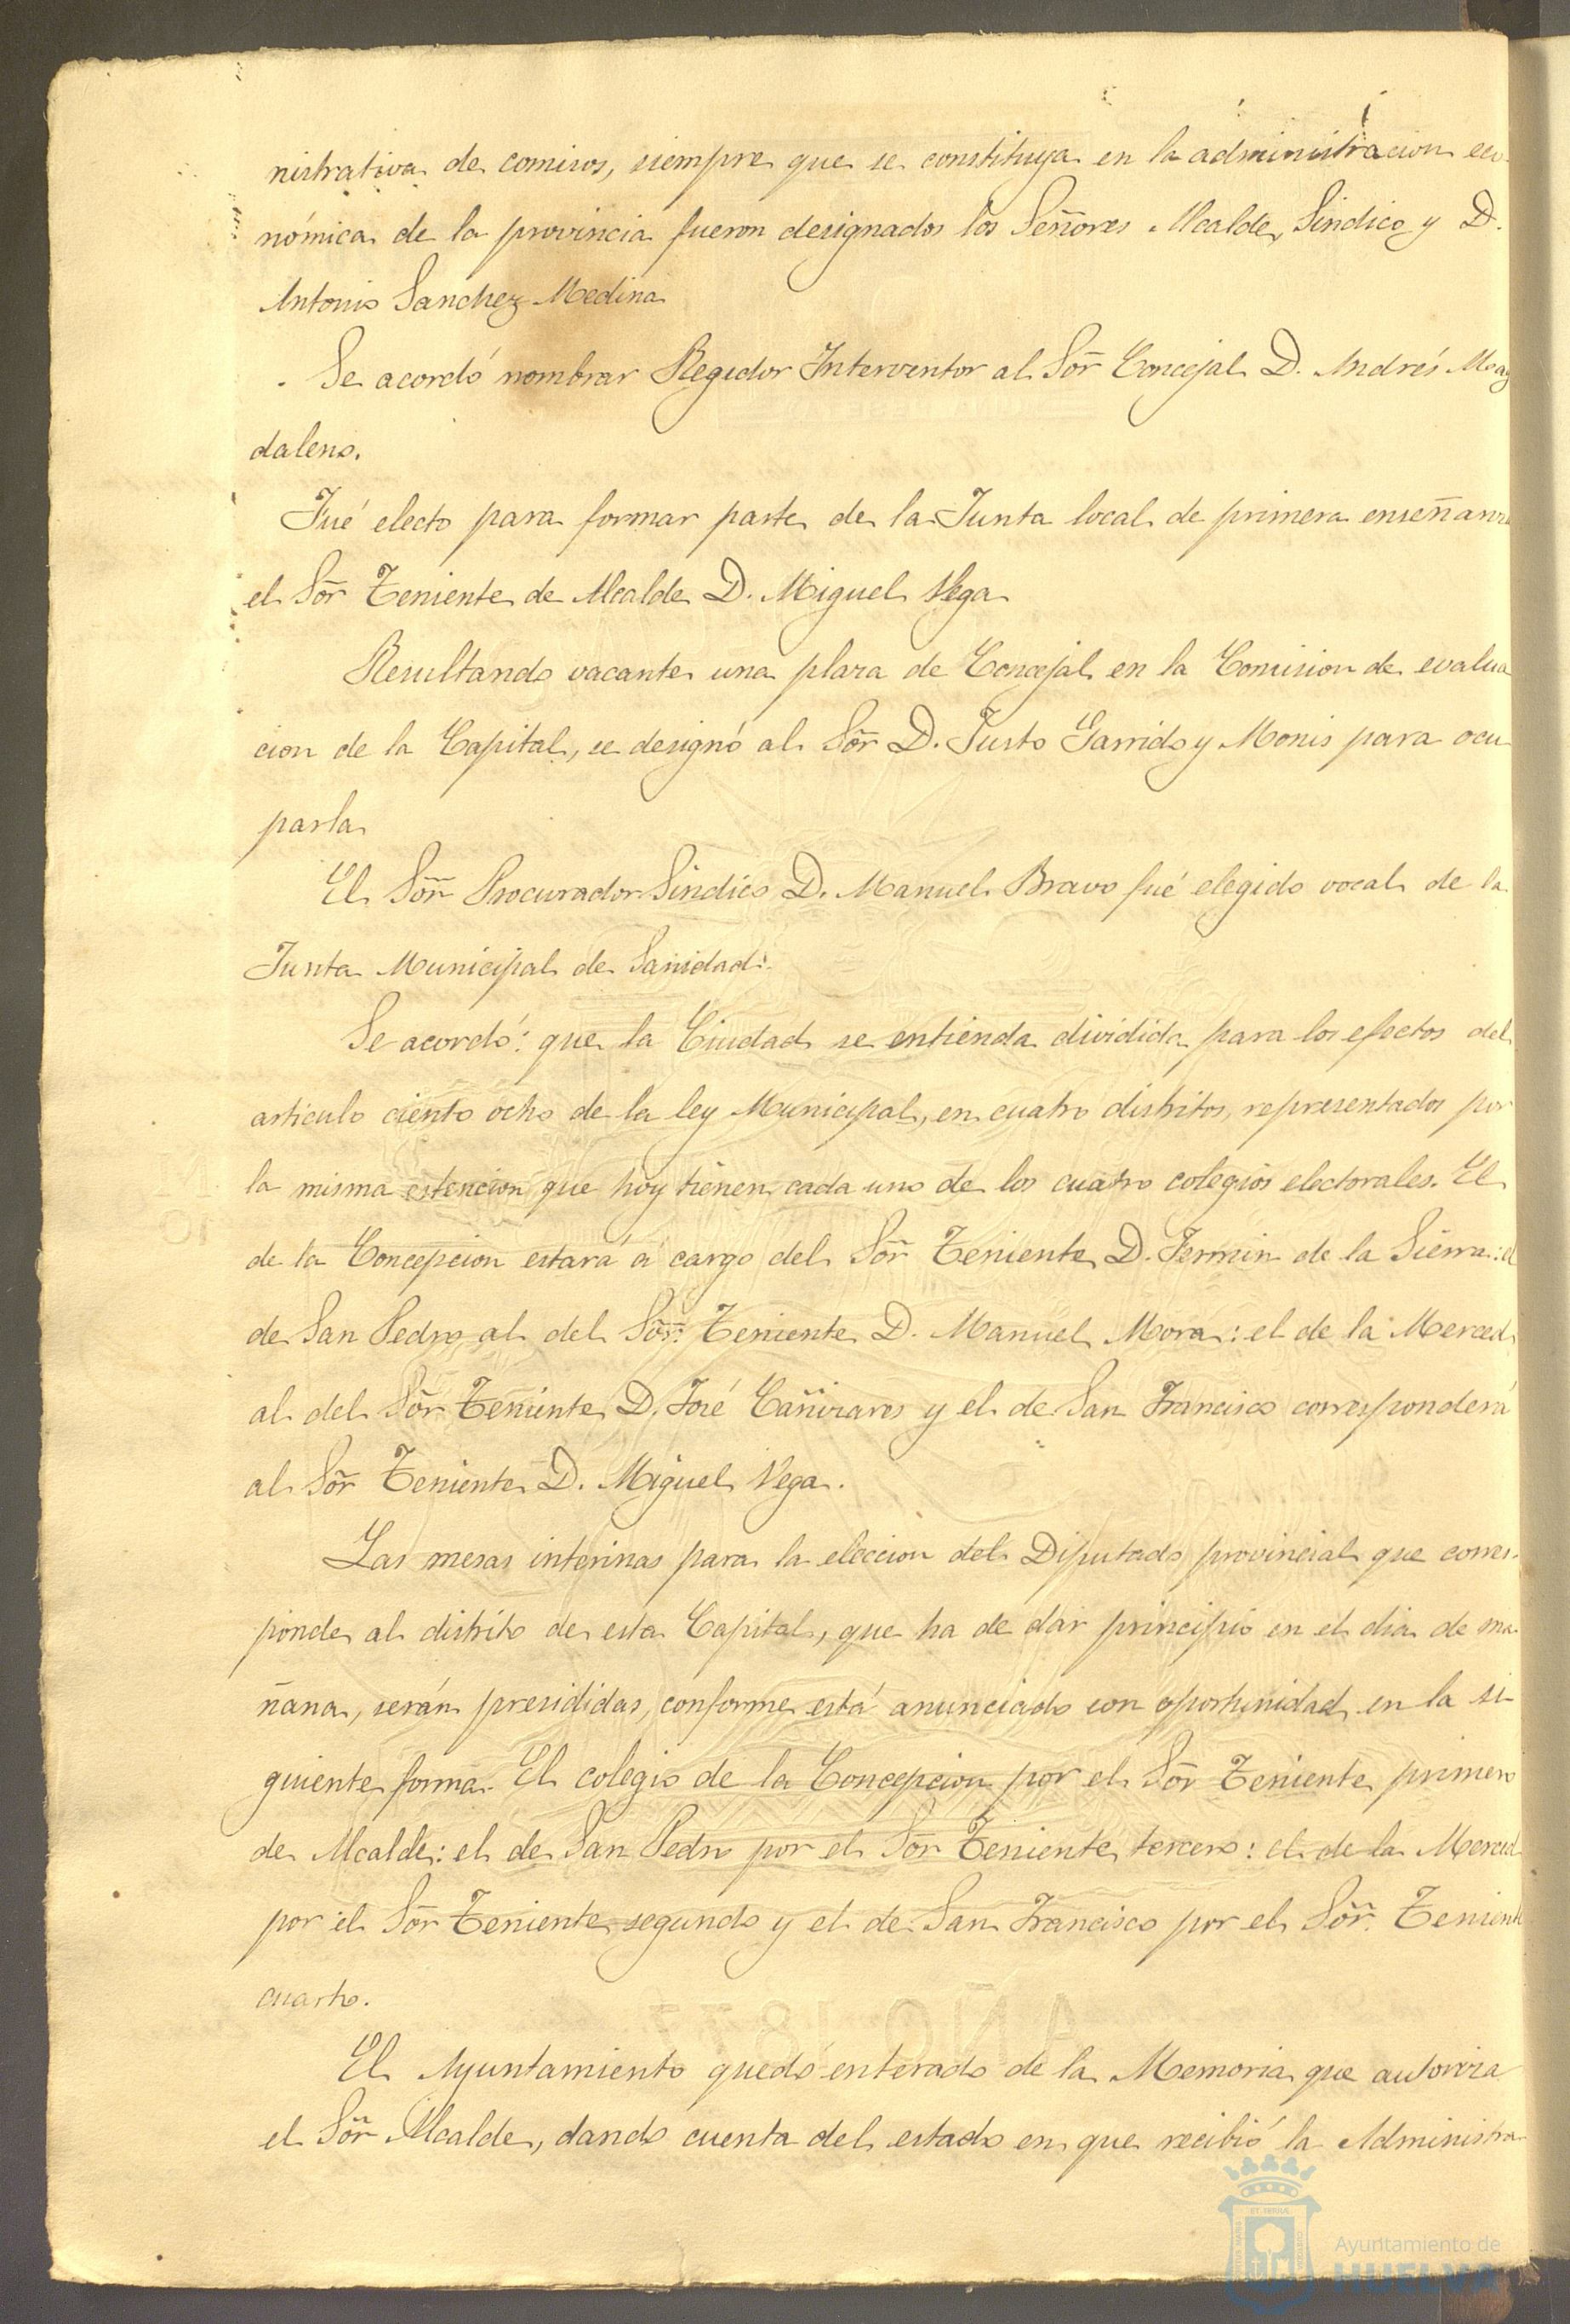 nistrativa de comisos, siempre que se constituya en la administracion eco-
nómica de la provincia fueron designados los Señores Alcalde, Sindico y D.
Antonio Sanchez Medina
Se acordó nombrar Regidor Interventor al Sõr Concejal D. Andrés Mag
daleno.
Fué electo para formar parte de la Junta local de primera enseñanza
el Sõr Teniente de Alcalde D. Miguel Vega
Resultando vacante una plaza de Concejal en la Comision de evalua
cion de la Capital, se designó al Sõr D. Justo Garrido y Monis para ocu
parla
El Sõr Procurador Sindico D. Manuel Bravo fué elegido vocal de la
Junta Municipal de Sanidad.
Se acordó: que la Ciudad se entienda dividida para los efectos del
articulo ciento ocho de la ley Municipal, en cuatro distritos, representados por
la misma estencion que hoy tienen cada uno de los cuatro colegios electorales. El
de la Concepcion estará á cargo del Sõr Teniente D. Fermin de la Sierra: el
de San Pedro, al del Sõr. Teniente D. Manuel Mora: el de la Merced
al del Sõr Teniente D. José Cañizares y el de San Francisco corresponderá
al Sõr Teniente D. Miguel Vega.
Las mesas interinas para la eleccion del Diputado provincial que corres-
ponde al distrito de esta Capital, que ha de dar principio en el dia de ma-
ñana, serán presididas, conforme está anunciado con oportunidad en la si-
guiente forma. El colegio de la Concepcion por el Sõr Teniente primero
de Alcalde: el de San Pedro por el Sõr Teniente tercero: el de la Merced
por el Sõr Teniente segundo y el de San Francisco por el Sõr. Teniente
cuarto.
El Ayuntamiento quedó enterado de la Memoria que autoriza
el Sõr Alcalde, dando cuenta del estado en que recibió la Administra-
AÑO 1877
Ayuntamiento de
HUELVA